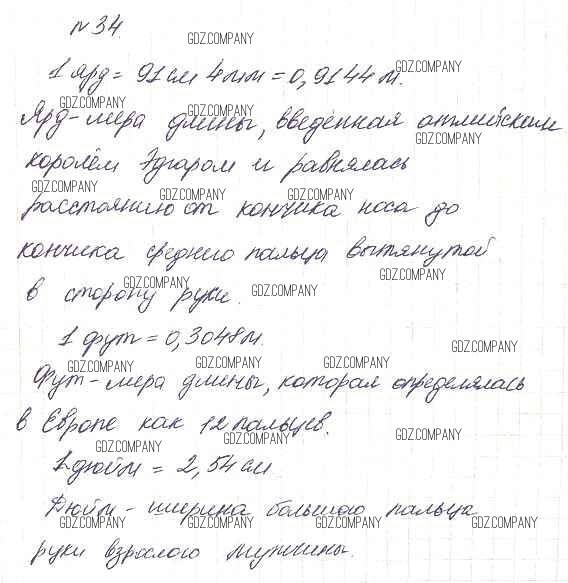 №34.
GDZ.COMPANY
1 ярд = 91 см 4 мм = 0,9144 м.
GDZ.COMPANY
GDZ.COMPANY GDZ.COMPANY
Ярд - мера длины, введённая английским
GDZ.COMPANY
королём Эдгаром и равнялась
GDZ.COMPANY GDZ.COMPANY GDZ.COMPANY
расстоянию от кончика носа до
кончика среднего пальца вытянутой
GDZ.COMPANY GDZ.COMPANY GDZ.COMPANY
в сторону руки.
1 фут = 0,3048 м.
GDZ.COMPANY
GDZ.COMPANY GDZ.COMPANY GDZ.COMPANY
Фут - мера длины, которая определялась
в Европе как 12 пальцев.
GDZ.COMPANY GDZ.COMPANY
1 дюйм = 2,54 см
Дюйм - ширина большого пальца
GDZ.COMPANY GDZ.COMPANY GDZ.COMPANY GDZ.COMPANY
руки взрослого мужчины.